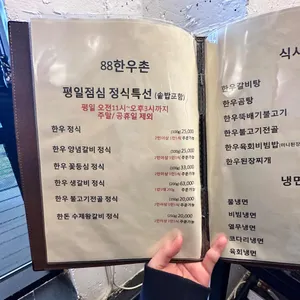 88한우촌
평일점심 정식특선 (솥밥포함)
평일 오전11시~오후3시까지
주말/공휴일 제외
한우 정식 (100g) 25,000
한우 양념갈비 정식 (100g) 25,000
한우 꽃등심 정식 (100g) 33,000
한우 생갈비 정식 (100g) 63,000
한우 불고기전골 정식 20,000
한돈 수제왕갈비 정식 20,000
식사
한우갈비탕
한우곰탕
한우뚝배기불고기
한우불고기전골
한우육회비빔밥
한우된장찌개
냉면
물냉면
비빔냉면
열무냉면
코다리냉면
육회냉면